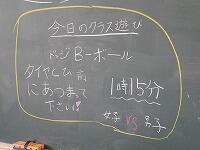 今日のクラス遊び
ドッジBーボール
タイヤとび前
にあつまって
下さい!
1時15分
女子 VS 男子